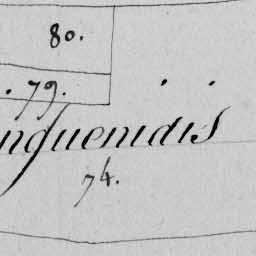 80.
. 79.
nguenidis
74.